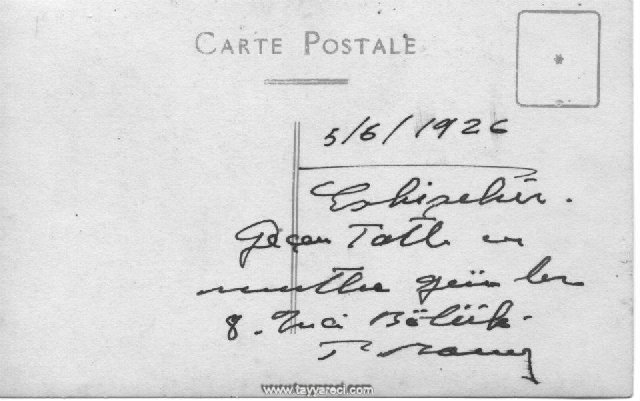 CARTE POSTALE
5/6/1926
Eskişehir.
Geçen Tatlı ve
mutlu günler
8. inci Bölük.
www.tayyareci.com